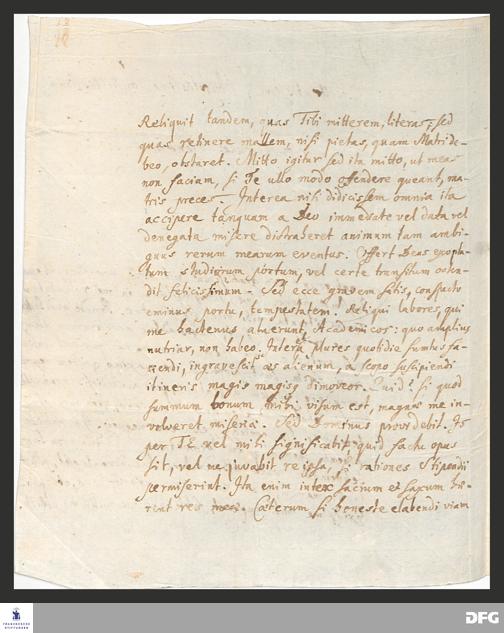 Reliquit tandem, quas Tibi mitterem, literas; sed
quas retinere mallem, nisi pietas, quam Matri de-
beo, obstaret. Mitto igitur sed ita mitto, ut meas
non faciam, si Te ullo modo offendere queant, ma-
tris preces. Interea nisi didicissem omnia ita
accipere tanquam a Deo immediate vel data vel
denegata misere distraheret animum tam ambi-
guus rerum mearum eventus. Offert Deus exopta-
tum studiorum portum, vel certe transitum osten-
dit felicissimum. Sed ecce gravem satis, conspecto
eminus portu, tempestatem! Reliqui labores, qui
me hactenus aluerunt, Academicos: quo amplius
nutriar, non habeo. Interea plures quotidie sumtus fa-
ciendi, ingravescit aes alienum, a scopo suscipiendi
itineris magis magisq dimoveor. Quid? si quod
summum bonum mihi visum est, magnis me in-
volveret miseriis. Sed Dominus providebit. Is
per TE vel mihi significabit, quid factu opus
sit, vel me juvabit re ipsa, si rationes Stipendii
permiserint. Ita enim inter sacrum et saxum hae-
rent res meae. Caeterum si honeste elabendi viam
FRANCKESCHE
STIFTUNGEN
DFG